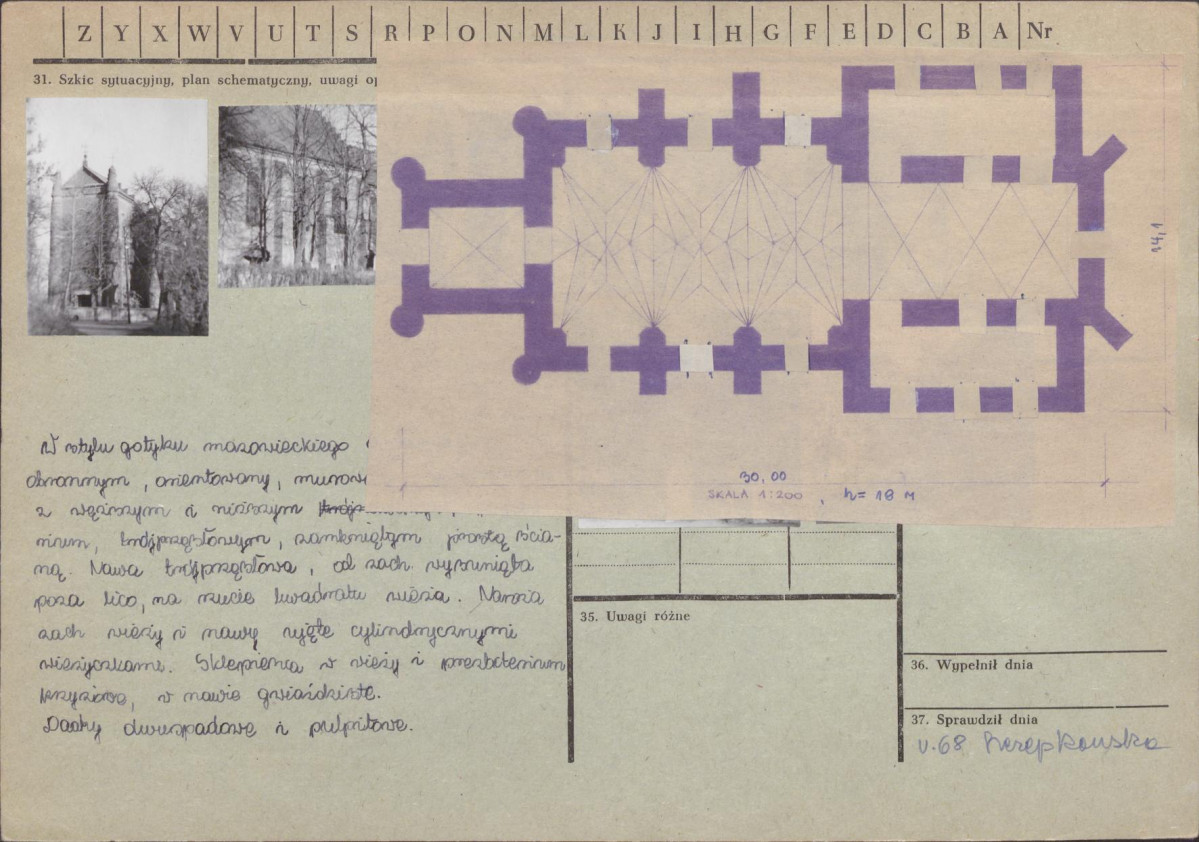 Z Y X W V U T S R P O N M L K J I H G F E D C B A Nr
31. Szkic sytuacyjny, plan schematyczny, uwagi op
14,1
30,00
SKALA 1:200 , h= 18 M
W stylu gotyku mazowieckiego
obronnym, orientowany, murow
z węższym i niższym
rium, trójprzęsłowym, zamkniętym prostą ścia-
ną. Nawa trójprzęsłowa, od zach wysunięta
poza lico, na rzucie kwadratu wieża. Naroża
zach wieży i nawy ujęte cylindrycznymi
wieżyczkami. Sklepienia w wieży i prezbiterium
krzyżowe, w nawie gwiaździste.
Dachy dwuspadowe i pulpitowe.
35. Uwagi różne
36. Wypełnił dnia
37. Sprawdził dnia
V.68